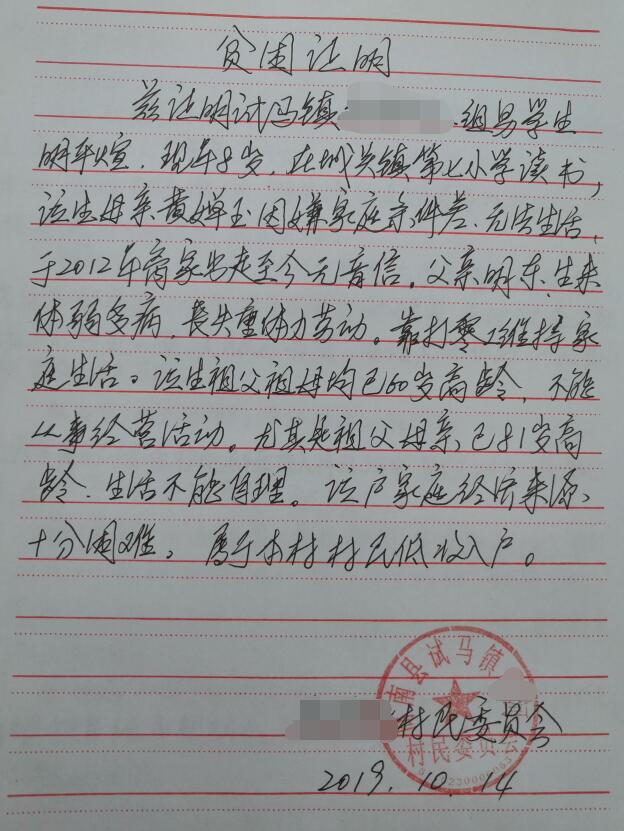 贫困证明
兹证明试马镇 组易学生
明年煊，现年8岁，在城关镇第七小学读书，
该生母亲黄婵玉因嫌家庭条件差、无法生活，
于2012年离家出走至今无音信。父亲明东，生来
体弱多病，丧失重体力劳动。靠打零工维持家
庭生活。该生祖父祖母均已60岁高龄，不能
从事经营活动。尤其是祖父母亲，已81岁高
龄，生活不能自理。该户家庭经济来源，
十分困难，属于本村村民低收入户。
南县试马镇
村民委员会
村民委员会
2019.10.14